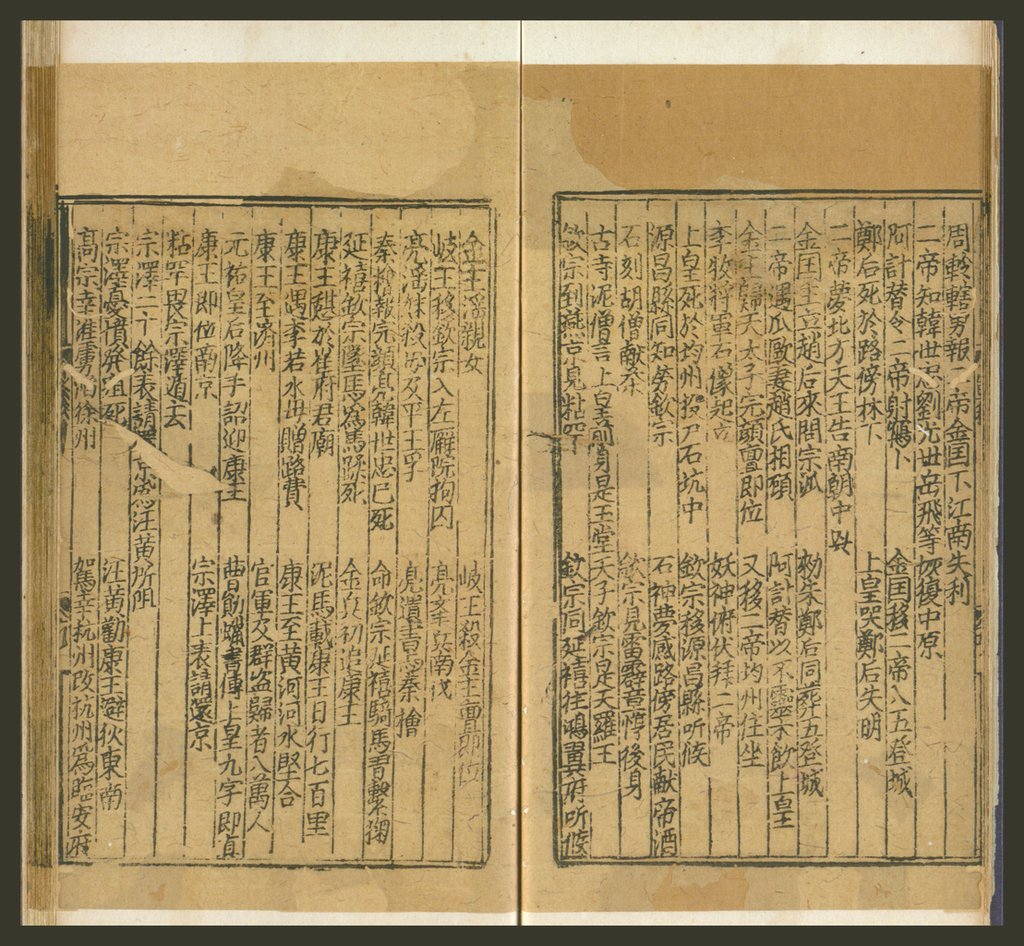 周軨轄男報二帝金国下江南失利
二帝知韓世忠劉光世岳飛等恢復中原
阿計替令二帝射鵶卜 金国移二帝入五登城
鄭后死於路傍林下 上皇哭鄭后失明
二帝夢北方天王告南朝中興
金国主立趙后來問宗派 勑朱鄭后同葬五登城
二帝遇瓜園妻趙氏相頭 阿計替以不靈不飲上皇
金主歸天太子完顔亶即位 又移二帝均州住坐
李牧將軍石像起立 妖神俯伏拜二帝
上皇死於均州投尸石坑中 欽宗移源昌縣听候
源昌縣同知勞欽宗 石神夢感路傍居民献帝酒
石刻胡僧献茶 欽宗見雷霹童陣後身
古寺泥僧言上皇前身是玉堂天子欽宗是天羅王
欽宗到燕京見粘罕 欽宗同延禧往鴻翼府听候
金主滛親女 岐王殺金主亶即位
岐王移欽宗入左廨院拘囚 亮奉兵南伐
亮滛妹殺母及平王孚 亮遺書忘秦檜
秦檜報完顔亮韓世忠已死 命欽宗延禧騎馬習擊掬
延禧欽宗墜馬爲馬蹂死 金兵初追康王
康王甦於崔府君廟 泥馬載康王日行七百里
康王遇李若水母贈路費 康王至黄河河水堅合
康王至濟州 官軍及群盗歸者八萬人
元祐皇后降手詔迎康王 曹勛躍書傳上皇九字即真
康王即位南京 宗澤上表請還京
粘罕畏宗澤遁去
宗澤二十餘表請還京爲汪黄所阻
宗澤憂憤発疽死 汪黄勸康王避狄東南
高宗幸淮虜陷徐州 駕幸杭州改杭州爲臨安府